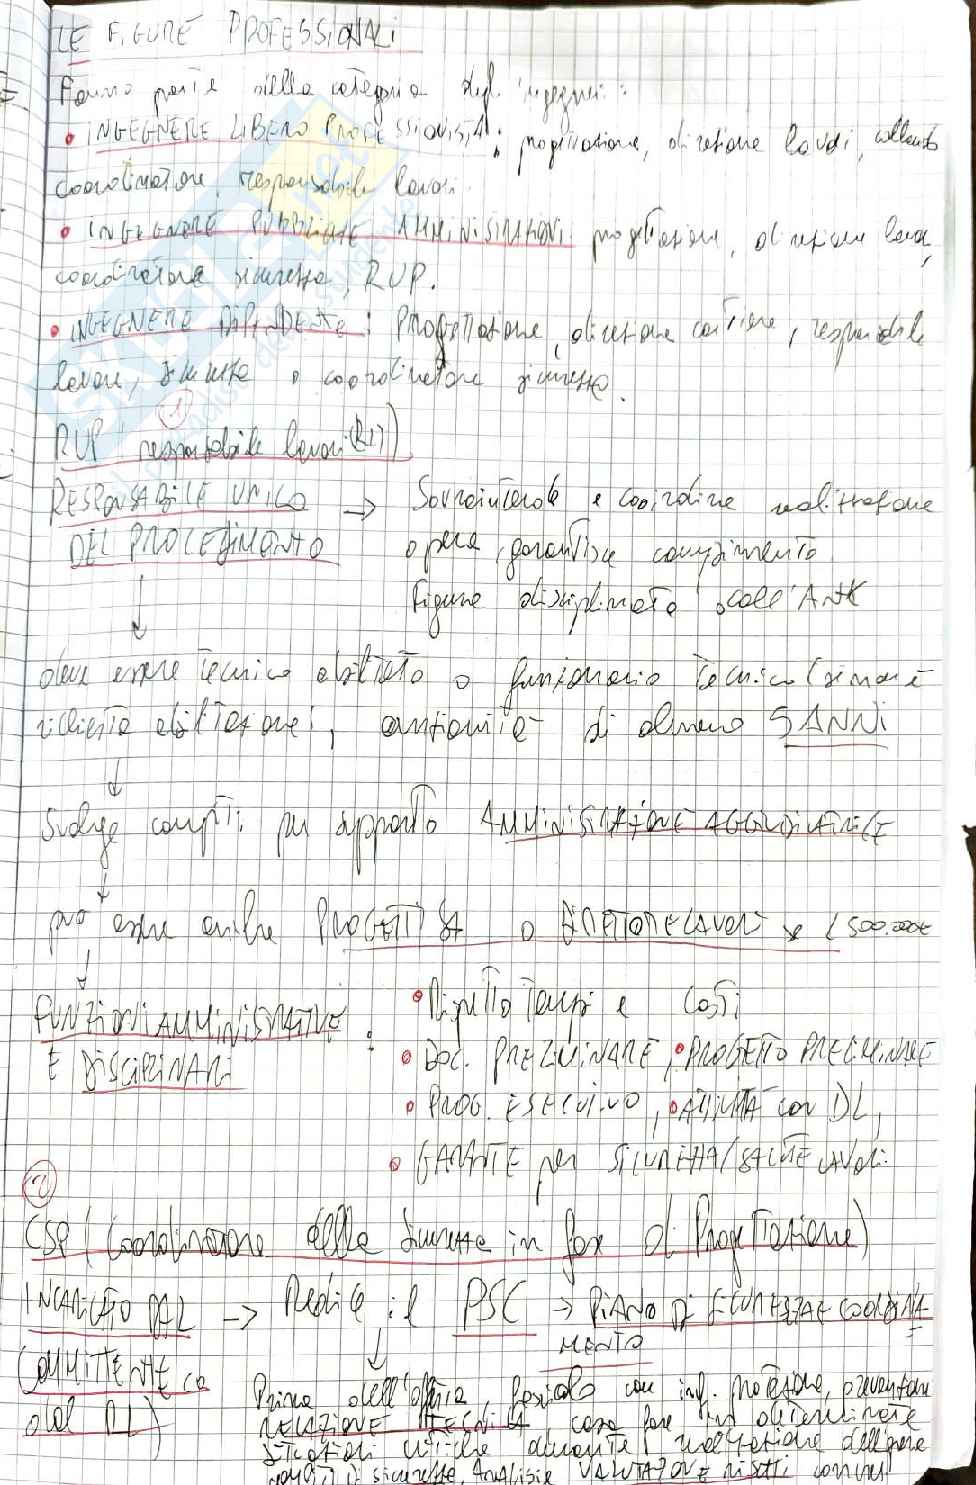 LE FIGURE PROFESSIONALI
Fanno parte della categoria degli ingegneri:
• INGEGNERE LIBERO PROFESSIONISTA: progettazione, direzione lavori, collaudo
coordinatore, responsabile lavori.
• INGEGNERE PUBBLICHE AMMINISTRAZIONI: progettazione, direzione lavori,
coordinatore sicurezza, RUP.
• INGEGNERE DIPENDENTE: Progettazione, direzione cantiere, responsabile
lavori, sicurezza o coordinatore sicurezza.
1
RUP (responsabile lavori (RL))
RESPONSABILE UNICO → Sovraintende e coordina realizzazione
DEL PROCEDIMENTO opera, garantisce compimento
figura disciplinata dall'
deve essere tecnico abilitato o funzionario tecnico (se non è
richiesta abilitazione), anzianità di almeno 5 ANNI
Svolge compiti per supporto AMMINISTRAZIONE AGGIUDICATRICE
può essere anche PROGETTISTA o DIRETTORE LAVORI < 500.000€
FUNZIONI AMMINISTRATIVE : • Rispetto Tempi e Costi
E DISCIPLINARI • DOC. PRELIMINARE, • PROGETTO PRELIMINARE
• PROG. ESECUTIVO, • ATTIVITÀ con DL,
• GARANTE per SICUREZZA/SALUTE LAVORI
2
CSP (Coordinatore della Sicurezza in fase di Progettazione)
INCARICATO DAL → Redige il PSC → PIANO DI SICUREZZA E COORDINA-
MENTO
COMMITTENTE (o
dal RL)
Prima dell'offerta, fascicolo con inf. protezione, prevenzione
RELAZIONE TECNICA cosa fare in determinate
situazioni critiche durante realizzazione dell'opera
sicurezza, Analisi e VALUTAZIONE rischi